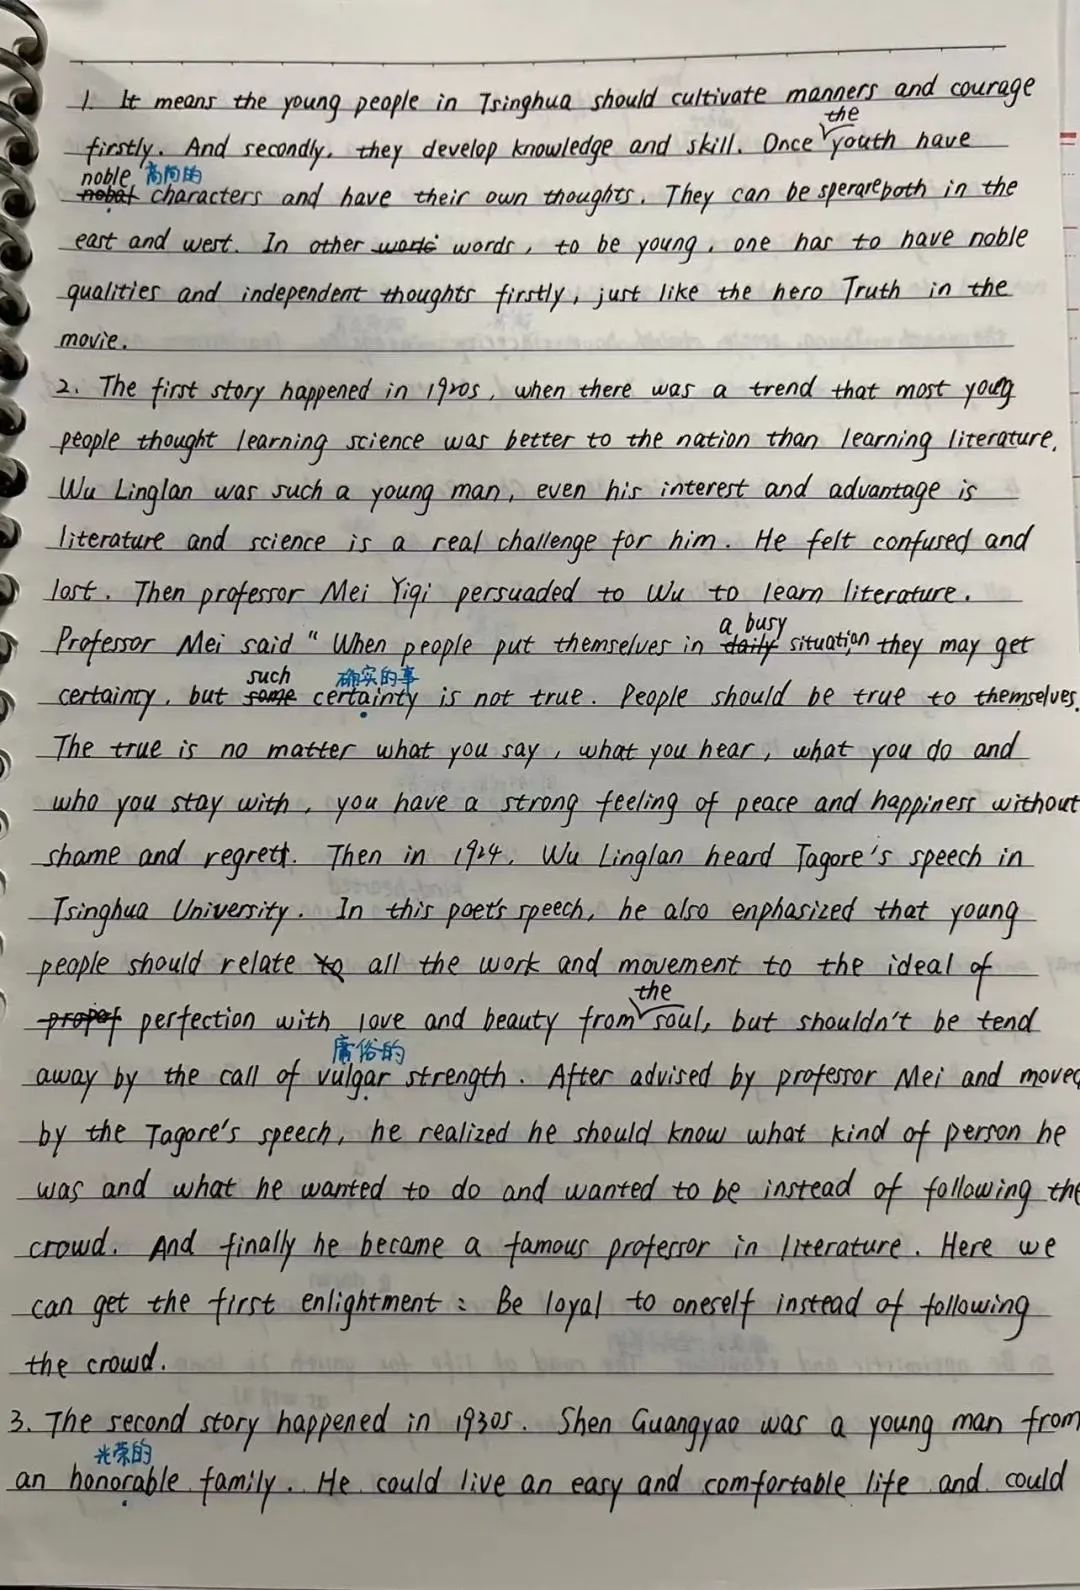 1. It means the young people in Tsinghua should cultivate manners and courage
the
firstly. And secondly, they develop knowledge and skill. Once youth have
noble 高尚的
characters and have their own thoughts. They can be sperare both in the
east and west. In other words, to be young, one has to have noble
qualities and independent thoughts firstly, just like the hero Truth in the
movie.
2. The first story happened in 1920s, when there was a trend that most young
people thought learning science was better to the nation than learning literature.
Wu Linglan was such a young man, even his interest and advantage is
literature and science is a real challenge for him. He felt confused and
lost. Then professor Mei Yiqi persuaded to Wu to learn literature.
a busy
Professor Mei said " When people put themselves in daily situation they may get
such 确实的事
certainty, but some certainty is not true. People should be true to themselves.
The true is no matter what you say, what you hear, what you do and
who you stay with, you have a strong feeling of peace and happiness without
shame and regrett. Then in 1924, Wu Linglan heard Tagore's speech in
Tsinghua University. In this poet's speech, he also enphasized that young
people should relate all the work and movement to the ideal of
the
perfection with love and beauty from soul, but shouldn't be tend
庸俗的
away by the call of vulgar strength. After advised by professor Mei and moved
by the Tagore's speech, he realized he should know what kind of person he
was and what he wanted to do and wanted to be instead of following the
crowd. And finally he became a famous professor in literature. Here we
can get the first enlightment: Be loyal to oneself instead of following
the crowd.
3. The second story happened in 1930s. Shen Guangyao was a young man from
光荣的
an honorable family. He could live an easy and comfortable life and could